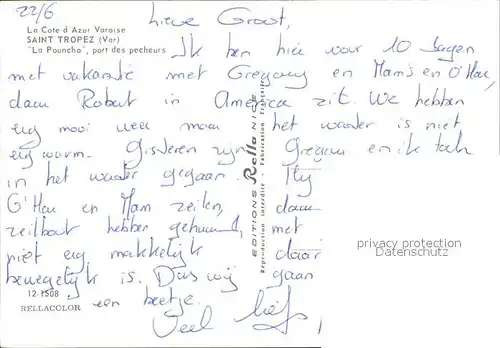 22/6
Lieve Groot,
La Cote d'Azur Varoise
SAINT TROPEZ (Var)
"La Pouncho", port des pecheurs
Ik ben hier voor 10 dagen
met vakantie met Gregory en Mam's en O'Hau,
daar Robert in America zit. We hebben
erg mooi weer maar het water is niet
erg warm. Gisteren zijn Gregory en ik toch
in het water gegaan.
O'Hau en Mam zeilen, daar
zeilboot hebben gehuurd, met
niet erg makkelijk daar
beweegelijk is. Dus wij gaan
een beetje.
Veel liefs
EDITIONS Rella NICE
Reproduction interdite - Fabrication Française
12-1508
RELLACOLOR
privacy protection
Datenschutz